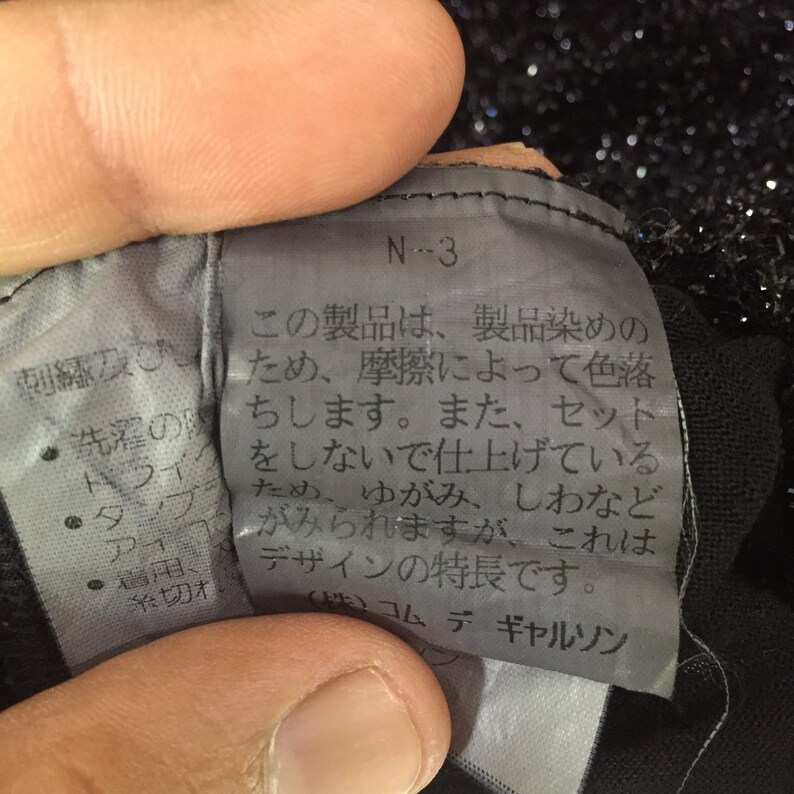 N-3
この製品は、製品染めの
ため、摩擦によって色落
ちします。また、セット
をしないで仕上げている
ため、ゆがみ、しわなど
がみられますが、これは
デザインの特長です。
(株)コム デ ギャルソン
刺繍及び
• 洗濯の
ドライ
• タンブラ
アイロ
• 着用、
糸切れ